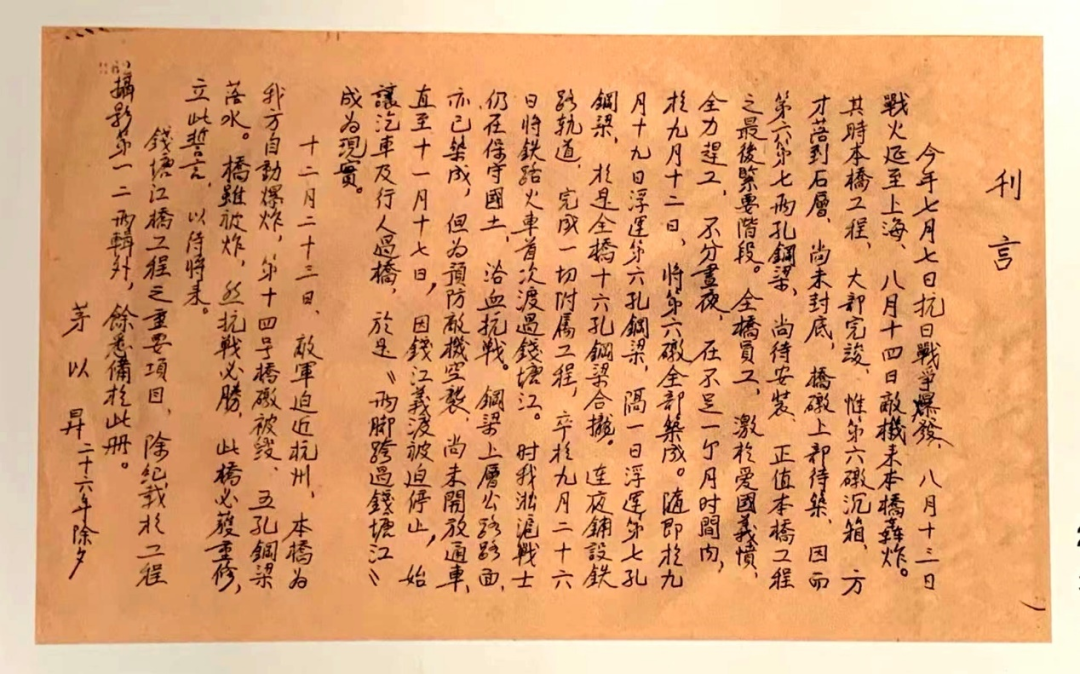 刊言
今年七月七日抗日戰爭爆發、八月十三日
戰火延至上海、八月十四日敵機來本橋轟炸。
其時本橋工程、大部完竣、惟第六礅沉箱、方
才落到石層、尚未封底、橋礅上部待築、因而
第六第七兩孔鋼梁、尚待安裝、正值本橋工程
之最後緊要階段。全橋員工、激於愛國義憤、
全力趕工、不分晝夜、在不足一个月時間内、
於九月十二日、將第六礅全部築成。隨即於九
月十九日浮運第六孔鋼梁、隔一日浮運第七孔
鋼梁、於是全橋十六孔鋼梁合攏。連夜鋪設鉄
路軌道、完成一切附属工程、卒於九月二十六
日將鉄路火車首次渡過錢塘江。时我淞滬戰士
仍在保守國土、浴血抗戰。鋼梁上層公路路面、
亦已築成、但為預防敵機空襲、尚未開放通車、
直至十一月十七日、因錢江義渡被迫停止、始
讓汽車及行人過橋、於是〝兩脚跨過錢塘江〞
成为現實。
十二月二十三日、敵軍迫近杭州、本橋为
我方自動爆炸、第十四号橋礅被毁、五孔鋼梁
落水。橋雖被炸、然抗戰必勝、此橋必獲重修、
立此誓言、以待將来。
錢塘江橋工程之重要項目、除紀载於工程
攝影第一二兩輯外、餘悉備於此册。
茅以昇 二十六年除夕